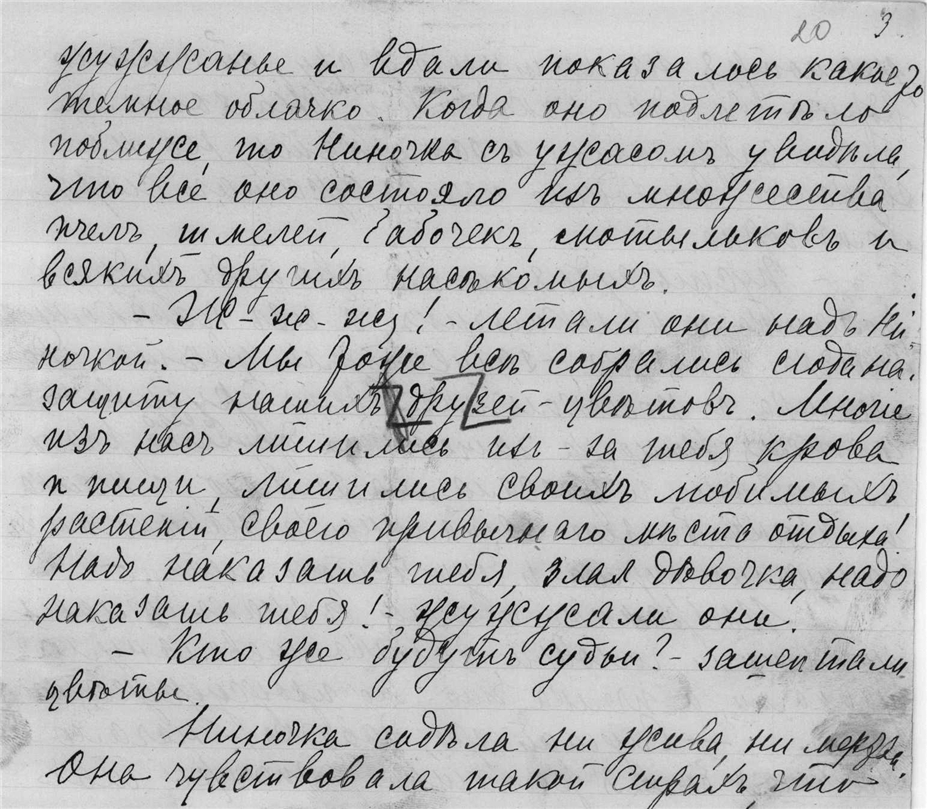 20 3.
жужжанье и вдали показалось какое то
темное облачко. Когда оно подлетѣло
поближе, то Ниночка съ ужасомъ увидѣла,
что всё оно состояло изъ множества
пчелъ, шмелей, бабочекъ, мотыльковъ и
всякихъ другихъ насѣкомыхъ.
– Ж-ж-жз! – летали они надъ Ни-
ночкой. – Мы тоже всѣ собрались сюда на
защиту нашихъ друзей – цвѣтовъ. Многіе
изъ насъ лишились изъ-за тебя крова
и пищи, лишились своихъ любимыхъ
растеній, своего привычнаго мѣста отдыха!
Надо наказать тебя, злая дѣвочка, надо
наказать тебя! – жужжали они.
– Кто же будутъ судьи? – зашептали
цвѣты.
Ниночка сидѣла ни жива, ни мертва.
Она чувствовала такой страхъ, что